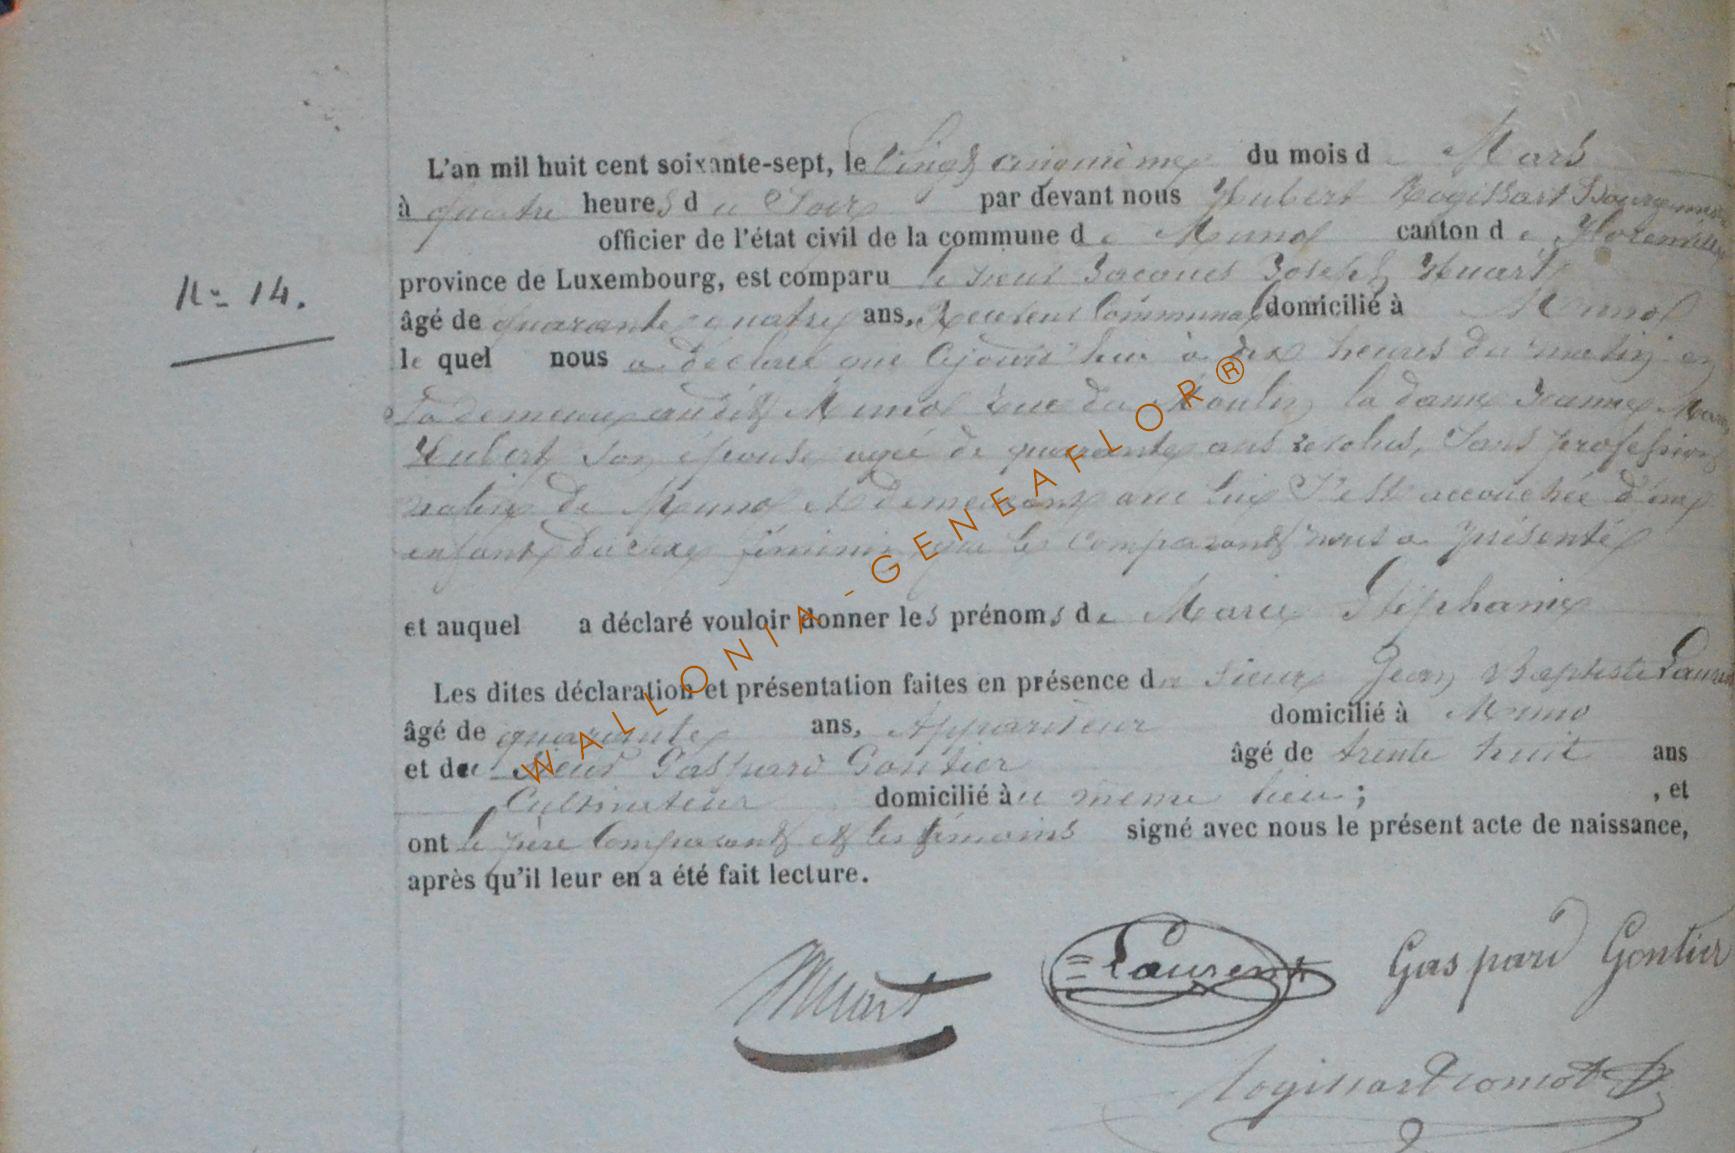 L'an mil huit cent soixante-sept, le Vingt cinquième du mois de Mars
à quatre heures du Soir par devant nous Hubert Rogissart Bourgmestre
officier de l'état civil de la commune de Muno canton de Florenville
province de Luxembourg, est comparu le sieur Jacques Joseph Huart
N° 14.
âgé de quarante quatre ans, Receveur Communal domicilié à Muno
lequel nous a déclaré que Cejourd'hui à dix heures du matin en
sa demeure audit Muno rue du Moulin la dame Jeanne Marie
Hubert son épouse agée de quarante ans revolus, Sans profession
native de Muno et demeurant avec lui S'est accouchée d'un
enfant du sexe féminin que le Comparant nous a présenté
et auquel a déclaré vouloir donner les prénoms de Marie Stéphanie
Les dites déclaration et présentation faites en présence du Sieur Jean Baptiste Laurent
âgé de quarante ans, Appariteur domicilié à Muno
et du Sieur Gaspard Gontier âgé de trente huit ans
Cultivateur domicilié au même lieu ; , et
ont le père Comparant et les témoins signé avec nous le présent acte de naissance,
après qu'il leur en a été fait lecture.
Huart Laurent Gaspard Gontier
WALLONIA - GENEAFLOR ®